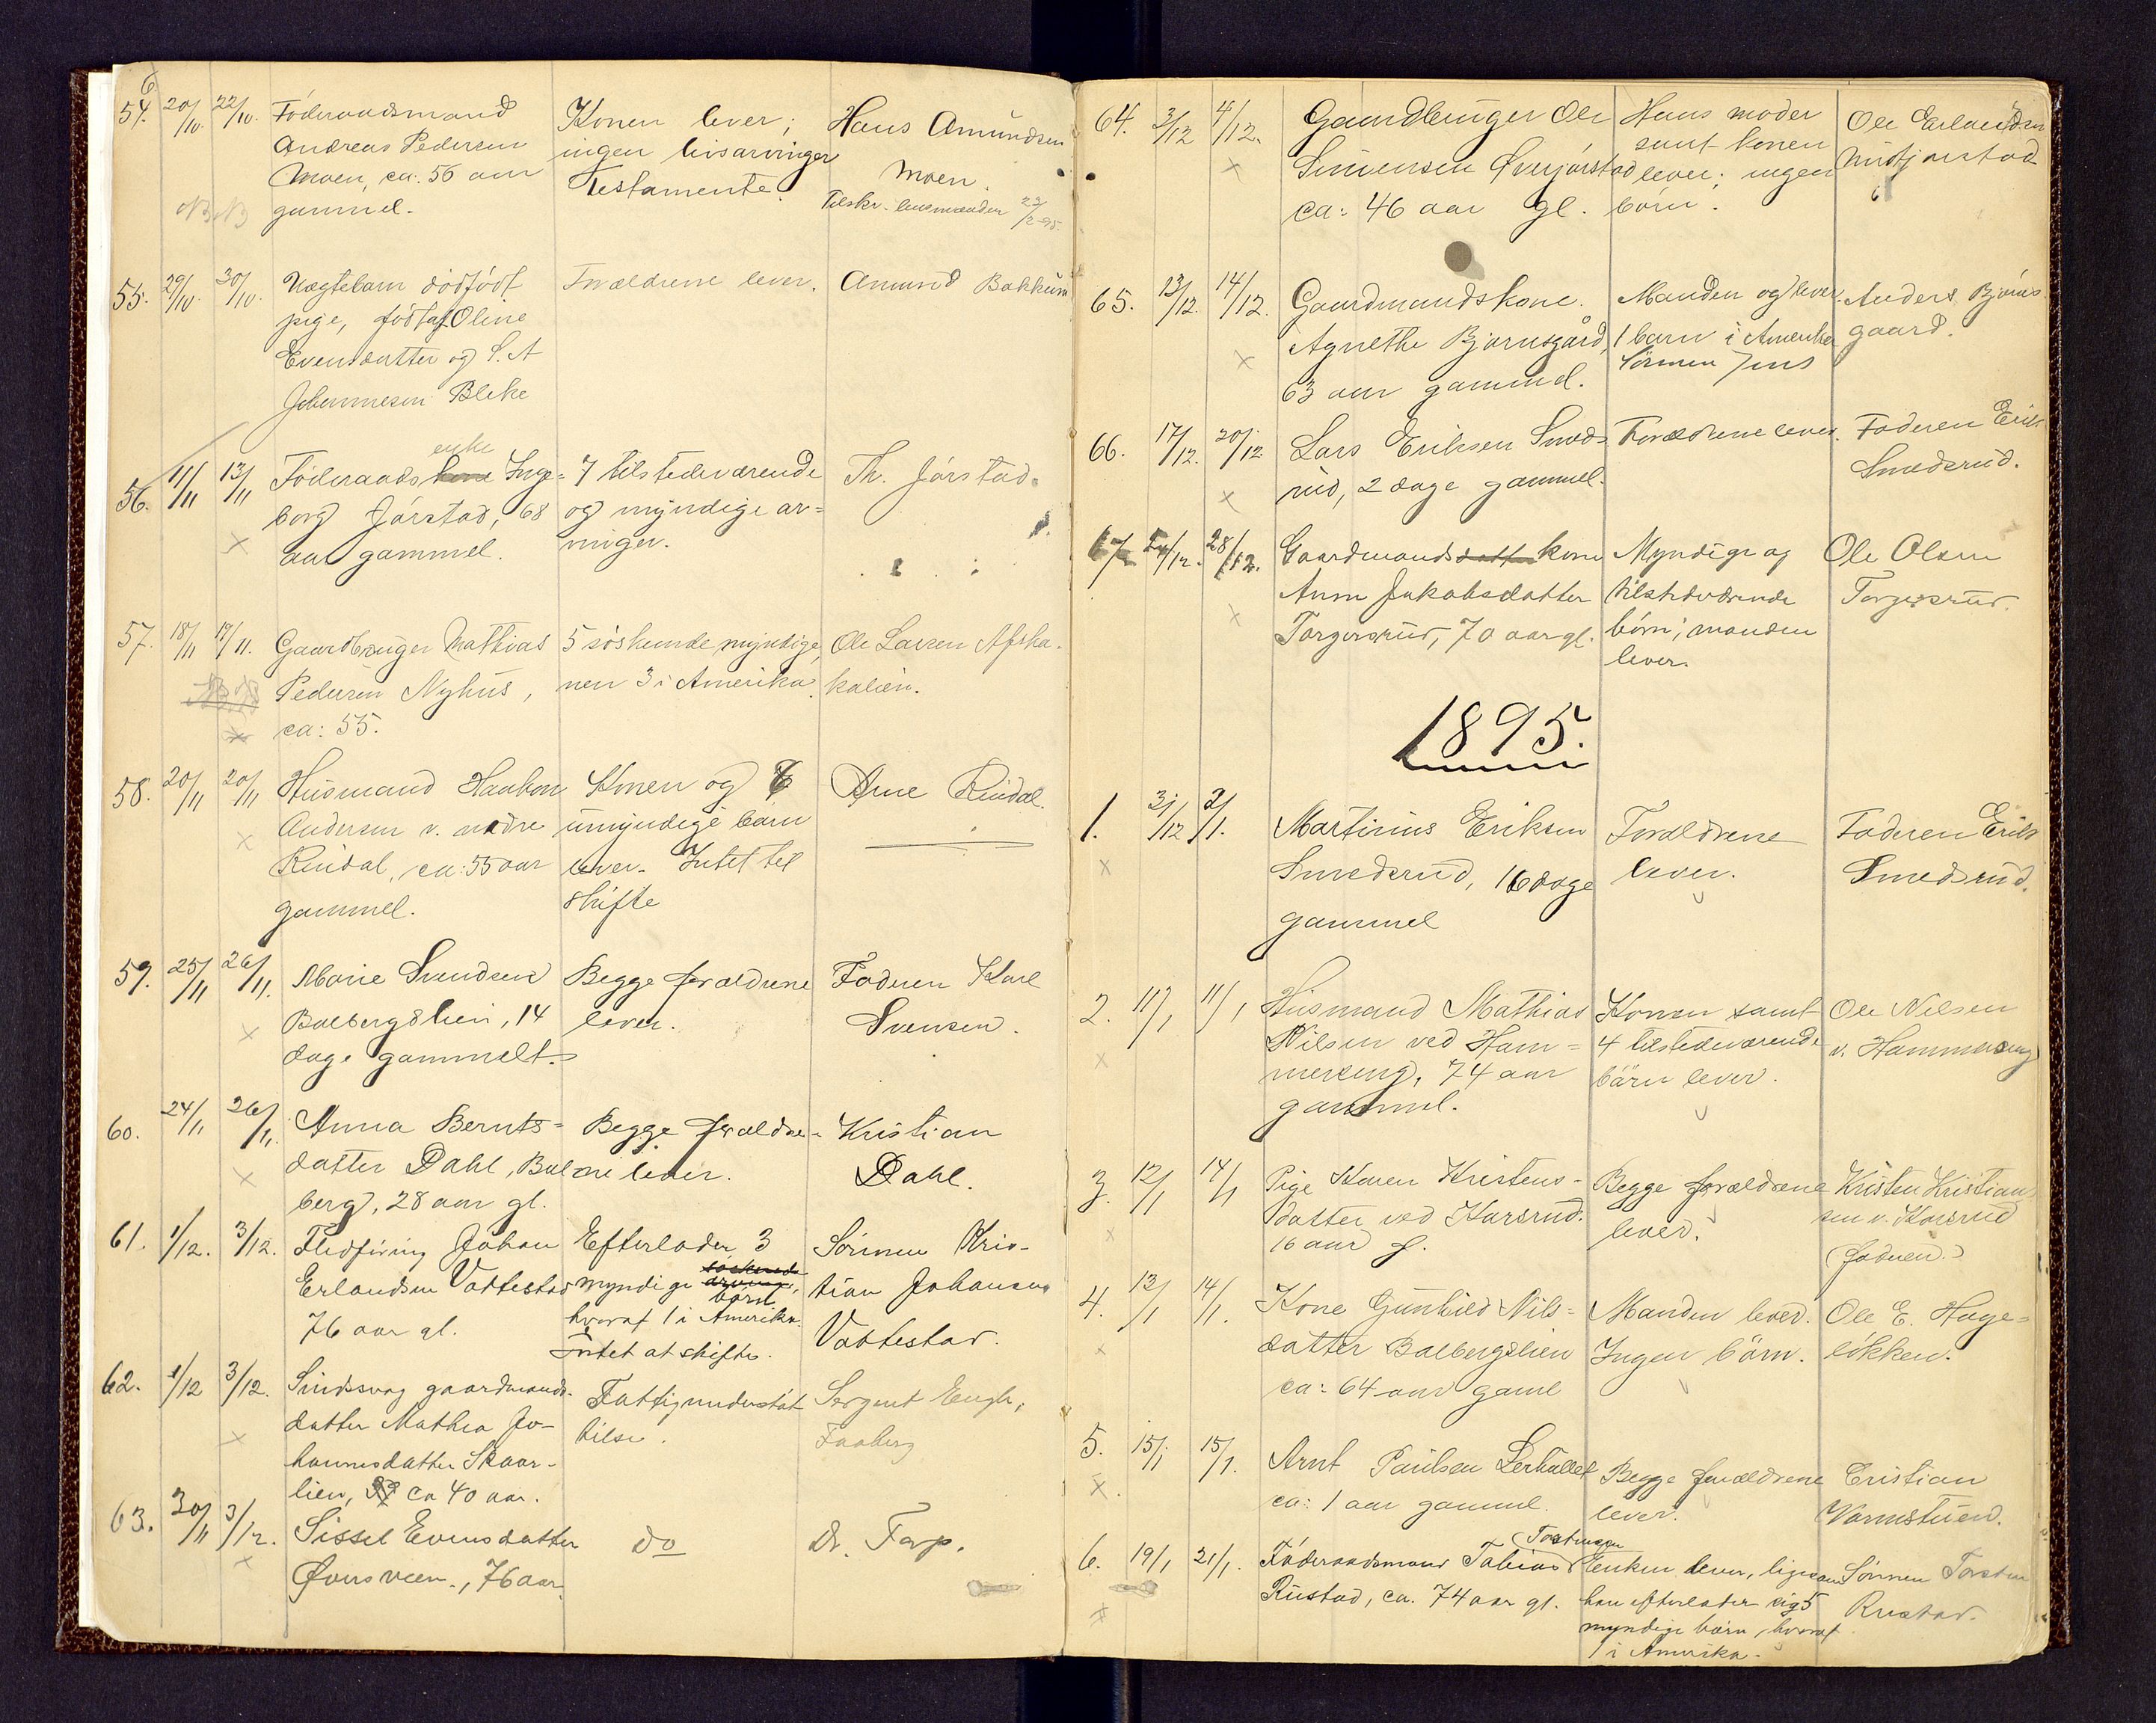 6
54. 20/10. 22/10. Föderaadsmand
Andreas Pedersen
Moen, ca. 56 aar
gammel.
NB
Konen lever;
ingen livsarvinger
Testamente.
Hans Amundsen
Moen.
Tilskr. lensmanden 22/2-95.
55. 29/10. 30/10. Uægtebarn dödfödt
pige, född af Oline
Evensdatter og S. A
Johannesen Bleke
Forældrene lever.
Amund Bakkum
56. 11/11 13/11 Föderaads kone enke Inge-
borg Jörstad, 68
aar gammel.
7 tilstedeværende
og myndige ar-
vinger.
Th. Jörstad.
57. 18/11 19/11. Gaardbruger Mathias
Pedersen Nyhus,
ca: 55.
5 söskende myndige,
men 3 i Amerika
Ole Larsen
58. 20/11 20/11 Husmand Haakon
Andersen v. nedre
Rindal, ca: 55 aar
gammel.
Konen og 6
umyndige barn
lever. Intet til
skifte
Arne Rindal.
59. 25/11 26/11. Marie Svendsen
Balbergslien, 14
dage gammelt.
Begge forældrene
lever.
Faderen Karl
Svensen.
60. 24/11 26/11. Anna Bernts-
datter Dahl, Bal
berg, 28 aar gl.
Begge forældre-
ne lever.
Kristian
Dahl.
61. 1/12. 3/12. Fledföring Johan
Erlandsen Vattestad
76 aar gl.
Efterlader 3
myndige börn,
hvoraf 1 i Amerika.
Intet at skifte.
Sönnen Kris-
tian Johansen
Vattestad.
62. 1/12 3/12. Sindssvag gaardmands-
datter Mathea Jo-
hannesdatter Skaar-
lien, ca 40 aar.
Fattigunderstöt
telse.
Sergent Engh,
Faaberg
63. 30/11 3/12. Sissel Evensdatter
Översveen., 76 aar.
do
Dr. Farp.
64. 3/12 4/12. Gaardbruger Ole
Simensen Överjörstad
ca: 46 aar gl.
Hans moder
samt konen
lever; ingen
börn.
Ole Erlandsen
Midtjörstad
65. 13/12. 14/12. Gaardmandskone
Agnethe Bjørnsgård,
63 aar gammel.
Manden og lever.
1 barn i Amerika
Sönnen Jens
Anders Björns-
gaard.
66. 17/12. 20/12 Lars Eriksen Smeds-
rud, 2 dage gammel.
Forældrene lever.
Faderen Erik
Smedsrud.
67. 28/12. Gaardmands datter kone
Anne Jakobsdatter
Torgersrud, 70 aar gl.
Myndige og
tilstedeværende
börn; manden
lever.
Ole Olsen
Torgersrud.
1895.
1. 31/12 2/1. Martinius Eriksen
Smedsrud, 16 dage
gammel
Forældrene
lever.
Faderen Erik
Smedsrud.
2. 11/1 11/1 Husmand Mathias
Nilsen ved Ham-
mereng, 74 aar
gammel.
Konen samt
4 tilstedeværende
börn lever.
Ole Nilsen
v. Hammereng
3. 12/1 14/1 Pige Karen Kristens-
datter ved Korsrud.
16 aar gl.
Begge forældrene
lever.
Kristen Kristian
sen v. Korsrud
(faderen.)
4. 13/1 14/1. Kone Gunhild Nils-
datter Balbergslien
ca: 64 aar gaml
Manden lever.
Ingen börn.
Ole E. Hage-
lökken.
5. 15/1 15/1. Arnt Paulsen Lerhullet
ca: 1 aar gammel.
Begge forældrene
lever.
Cristian
Varmstuen.
6. 19/1 21/1. Föderaadsmand Tobias Tostensen
Rustad, ca. 74 aar gl.
Enken lever, ligesom
han efterlader sig 5
myndige börn, hvoraf
1 i Amerika.
Sönnen Torsten
Rustad.